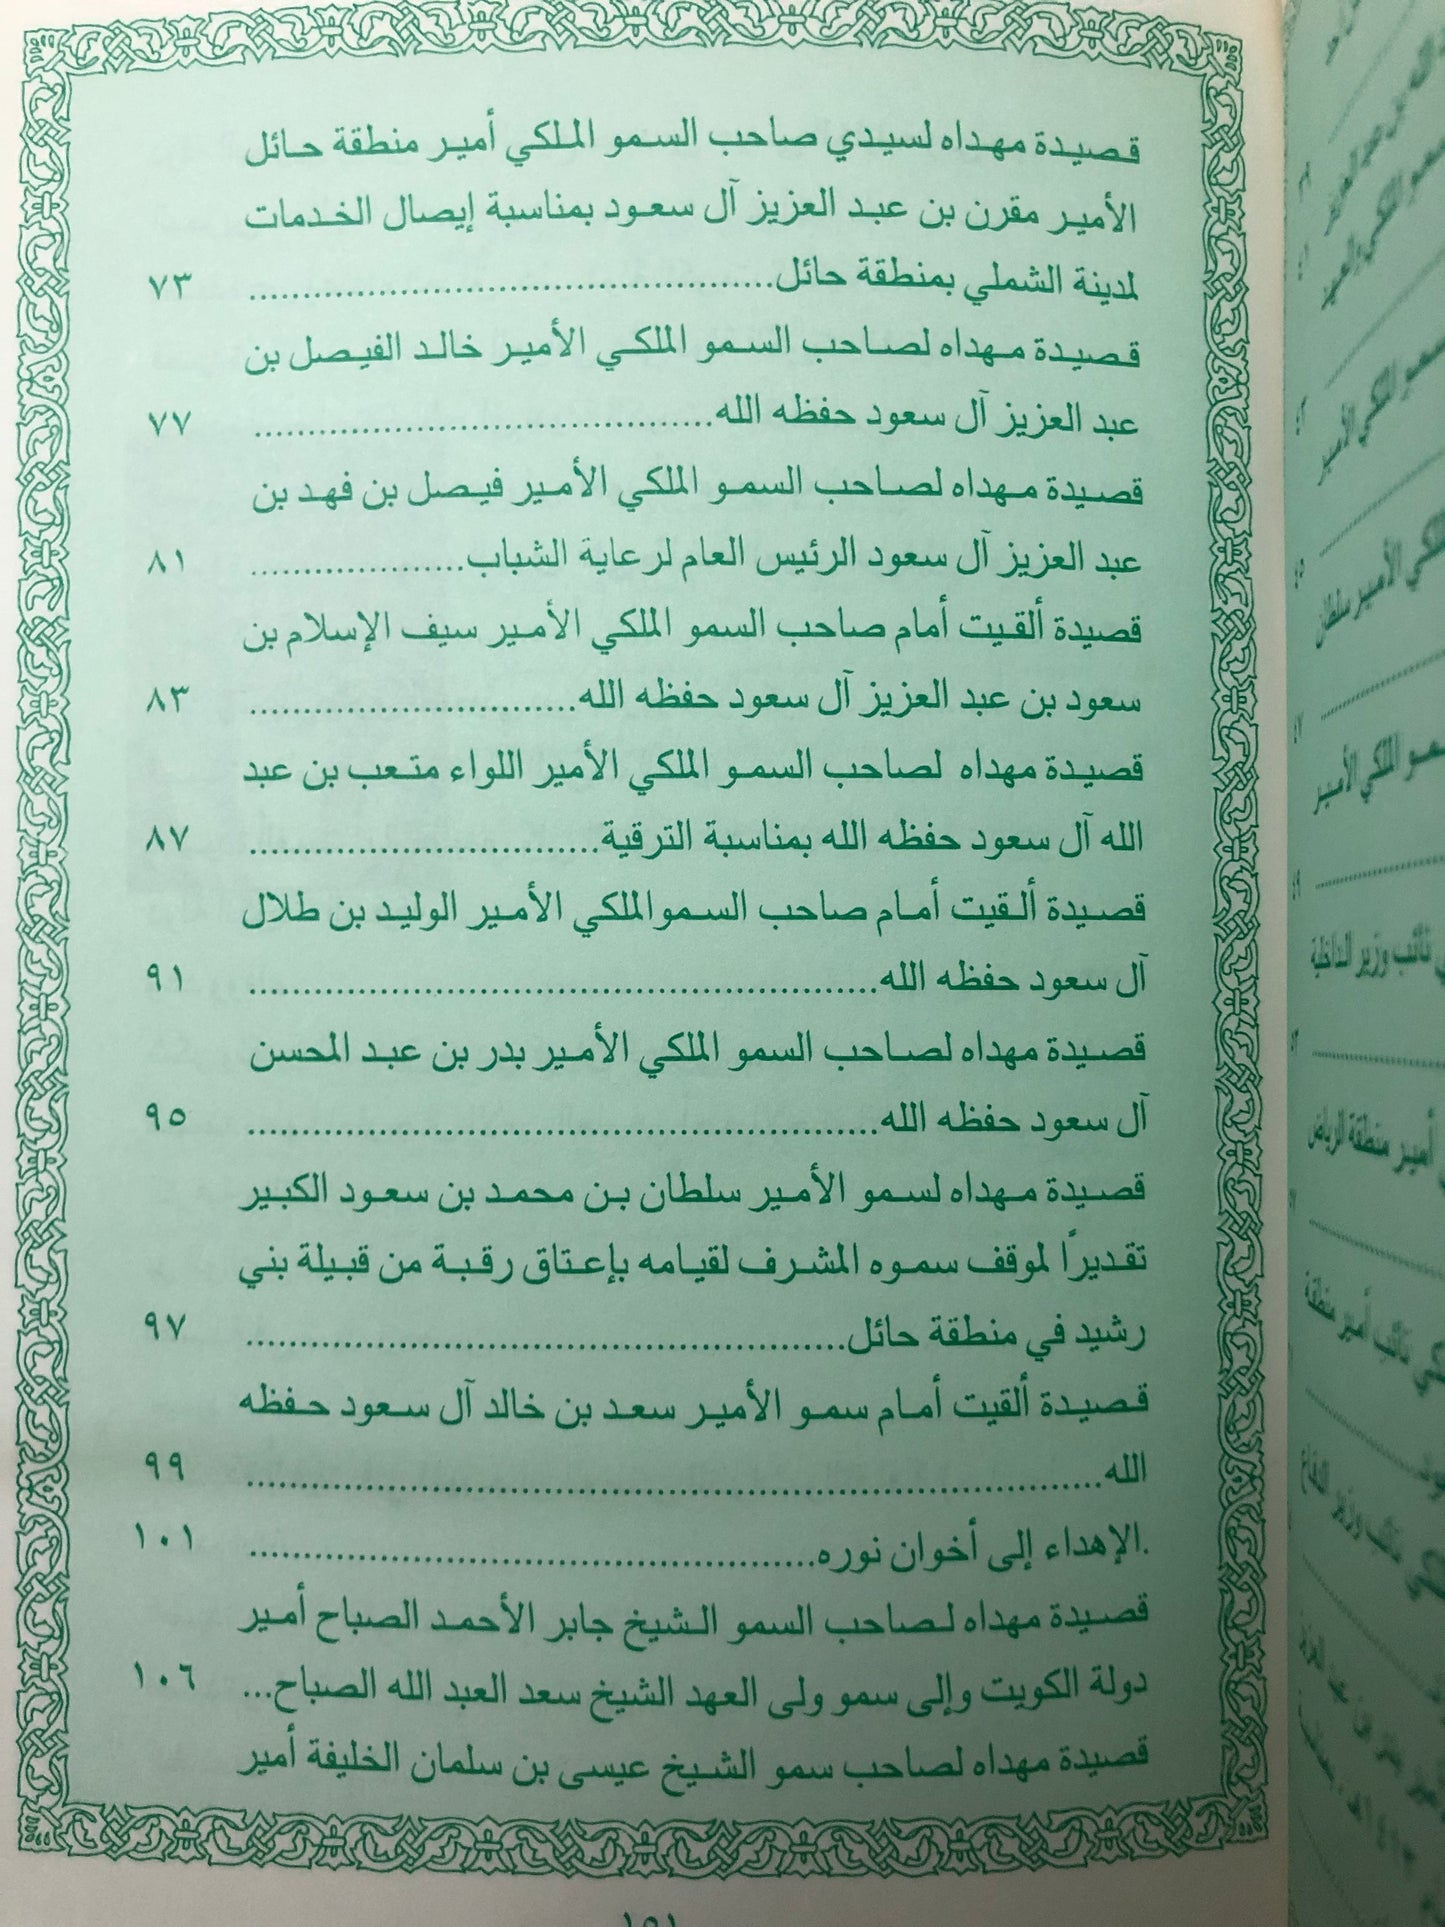 قصيدة مهداه لسيدي صاحب السمو الملكي أمير منطقة حائل
الأمير مقرن بن عبد العزيز آل سعود بمناسبة إيصال الخدمات
لمدينة الشملي بمنطقة حائل................................................ ٧٣
قصيدة مهداه لصاحب السمو الملكي الأمير خالد الفيصل بن
عبد العزيز آل سعود حفظه الله.......................................... ٧٧
قصيدة مهداه لصاحب السمو الملكي الأمير فيصل بن فهد بن
عبد العزيز آل سعود الرئيس العام لرعاية الشباب.................... ٨١
قصيدة ألقيت أمام صاحب السمو الملكي الأمير سيف الإسلام بن
سعود بن عبد العزيز آل سعود حفظه الله.............................. ٨٣
قصيدة مهداه لصاحب السمو الملكي الأمير اللواء متعب بن عبد
الله آل سعود حفظه الله بمناسبة الترقية................................ ٨٧
قصيدة ألقيت أمام صاحب السمو الملكي الأمير الوليد بن طلال
آل سعود حفظه الله.......................................................... ٩١
قصيدة مهداه لصاحب السمو الملكي الأمير بدر بن عبد المحسن
آل سعود حفظه الله.......................................................... ٩٥
قصيدة مهداه لسمو الأمير سلطان بن محمد بن سعود الكبير
تقديرًا لموقف سموه المشرف لقيامه بإعتاق رقبة من قبيلة بني
رشيد في منطقة حائل....................................................... ٩٧
قصيدة ألقيت أمام سمو الأمير سعد بن خالد آل سعود حفظه
الله............................................................................... ٩٩
.الإهداء إلى أخوان نوره.................................................... ١٠١
قصيدة مهداه لصاحب السمو الشيخ جابر الأحمد الصباح أمير
دولة الكويت وإلى سمو ولى العهد الشيخ سعد العبد الله الصباح... ١٠٦
قصيدة مهداه لصاحب سمو الشيخ عيسى بن سلمان الخليفة أمير
سمو الملكي الأمير
نائب وزير الداخلية
أمير منطقة الرياض
نائب أمير منطقة